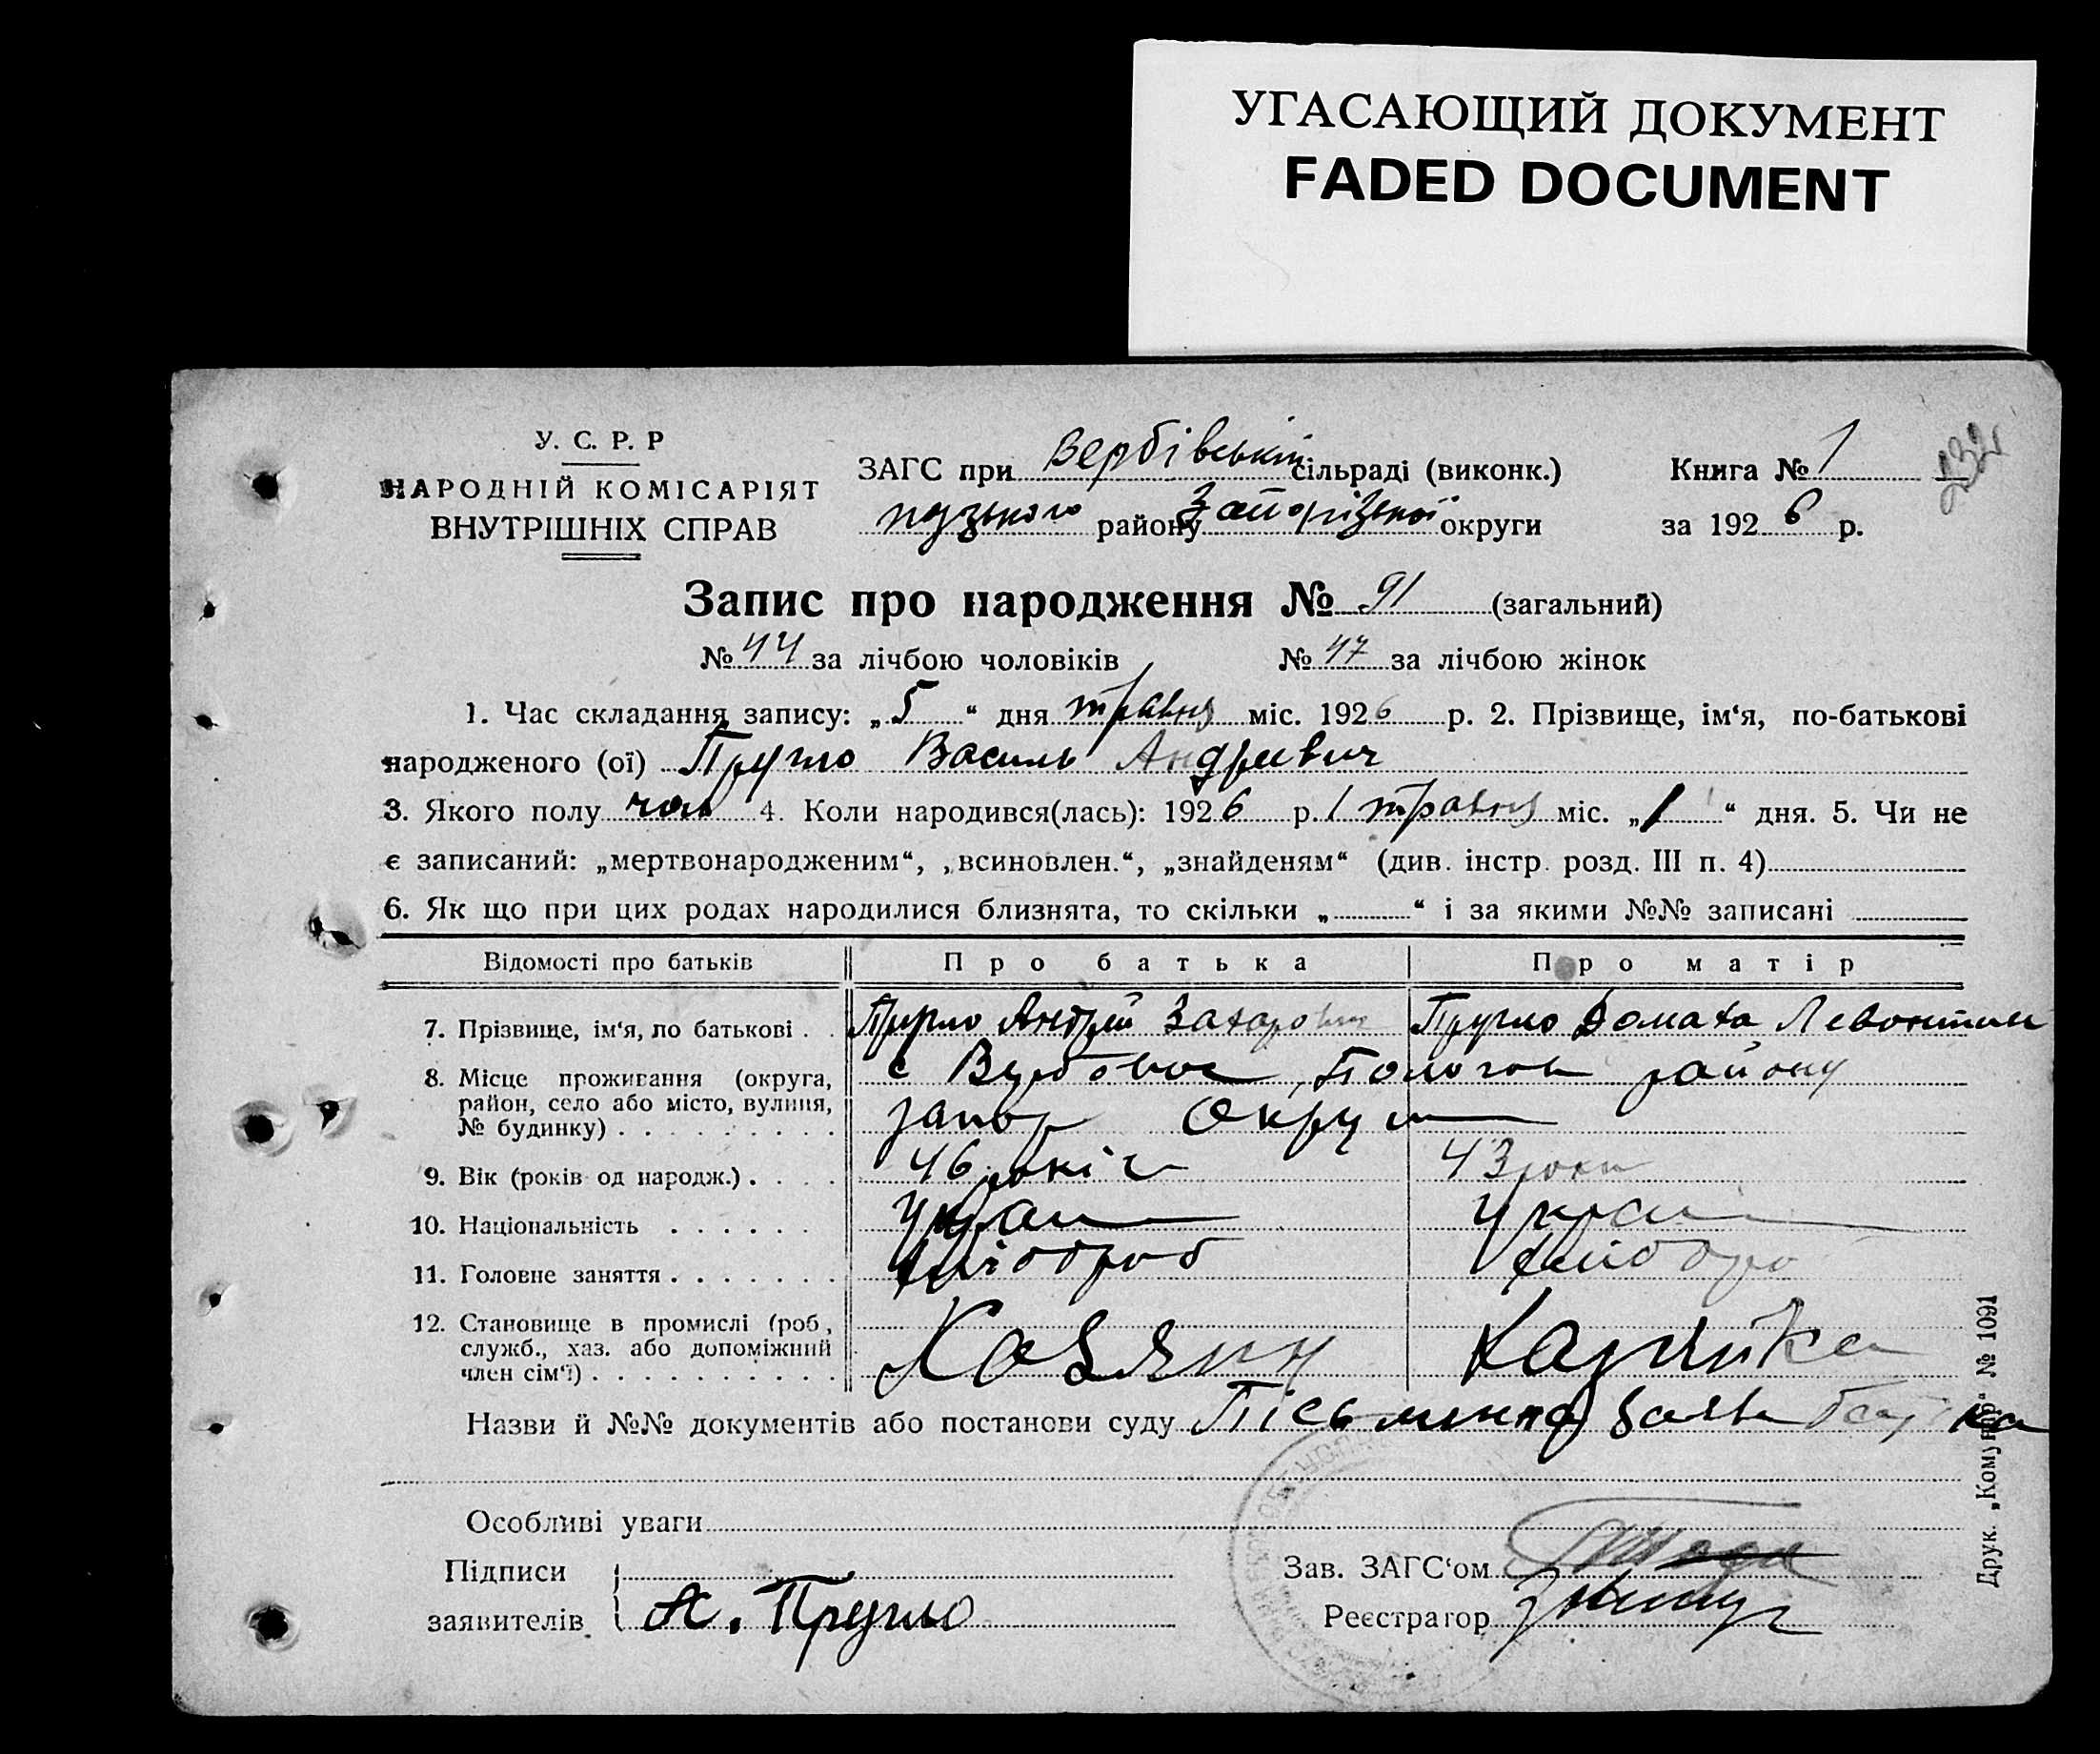 УГАСАЮЩИЙ ДОКУМЕНТ
FADED DOCUMENT
У. С. Р. Р
НАРОДНІЙ КОМІСАРІЯТ
ВНУТРІШНІХ СПРАВ
ЗАГС при Вербівській сільраді (виконк.)
району Запорізької округи
Книга № 1
232
за 1926 р.
Запис про народження № 91 (загальний)
№ 44 за лічбою чоловіків № 47 за лічбою жінок
1. Час складання запису: „5“ дня травня міс. 1926 р. 2. Прізвище, ім‘я, по-батькові
народженого (ої) Пругло Василь Андревич
3. Якого полу чол 4. Коли народився(лась): 1926 р. 1 травня міс. „1“ дня. 5. Чи не
є записаний: „мертвонародженим“, „всиновлен.“, „знайденям“ (див. інстр. розд. III п. 4)
6. Як що при цих родах народилися близнята, то скільки „ “ і за якими №№ записані
Відомості про батьків Про батька Про матір
7. Прізвище, ім‘я, по батькові . . Пругло Андрій Захарович Пругло Домаха Левонтии
8. Місце проживання (округа,
район, село або місто, вулиця,
№ будинку) . . . . . . . . .
с Вербовое Пологов району
запор Округи
9. Вік (років од народж.) . . . . 46 років 43 роки
10. Національність . . . . . . Украи Украи
11. Головне заняття . . . . . . . хлібороб хліборо
12. Становище в промислі (роб.,
служб., хаз. або допоміжний
член сім‘ї) . . . . . . . . . .
Хазяин хазяйка
Назви й №№ документів або постанови суду Пісьменна заява батька
Особливі уваги
Підписи
заявителів
А. Пругло
Зав. ЗАГС‘ом
Реєстратор
Друк. „Комунар“ № 1091